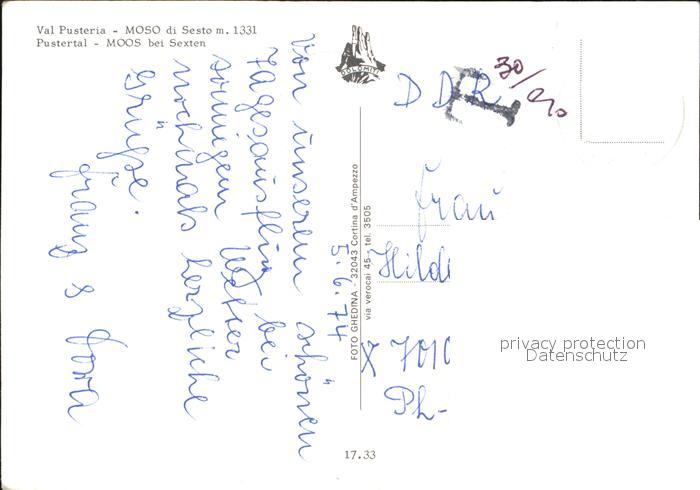 Val Pusteria - MOSO di Sesto m. 1331
Pustertal - MOOS bei Sexten
DOLOMITI
Von unserem schönen
Tagesausflug bei
sonnigem Wetter
nochmals herzliche
Grüße.
Franz & Dora
5.6.74
FOTO GHEDINA - 32043 Cortina d'Ampezzo
via verocai 45 - tel. 3505
DDR
T
30/
Frau
Hild
X 701
Ph-
privacy protection
Datenschutz
17.33